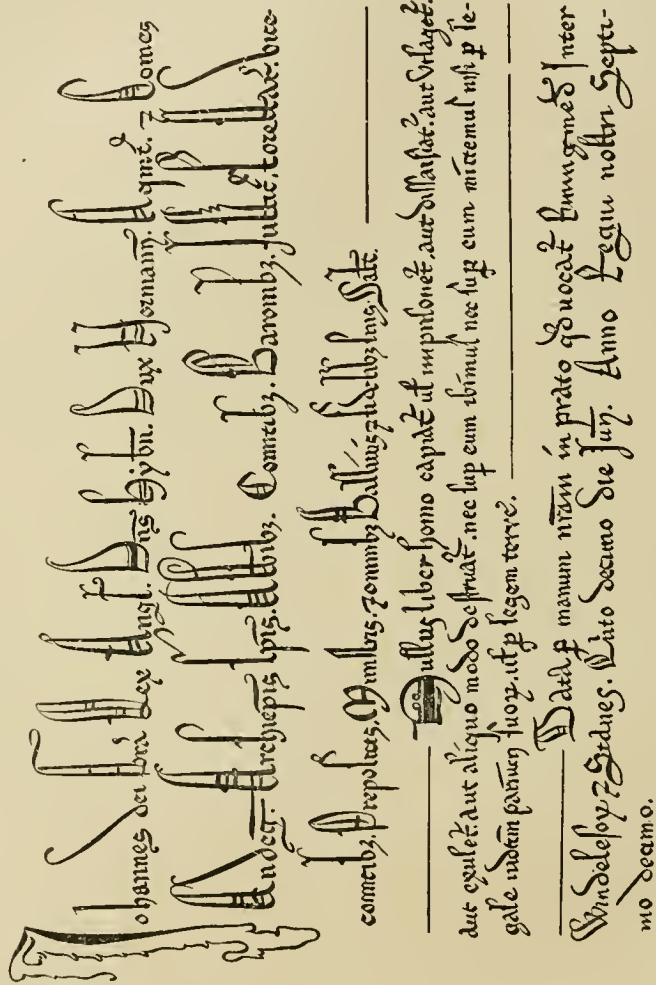 Johannes dei gr̄a Rex Angl. Dn̄s Hybn. Dux Normann̄. Aqnit̄. 7 Comes
Andeg̃. Archiepis̄. Ep̄is. Abb̄ibz. Comitibz. Baronibz. Justic̄. forestar̄. vice-
comitibz. Prepositis. Ministris. 7 omnibz Ballivis 7 fidelibz suis. Salt̄.
Nullus liber homo capiat̃ ul̃ imp̃sonet̃. aut dissaisiat̃. aut utlaget̃.
aut exulet̃. aut aliquo modo destruat̃. nec sup̱ eum ibimus nec sup̱ eum mittemus nisi p̱ le-
gale iudiciū parium suoꝝ. ul̃ p̱ legem terre.
Data p̱ manum nr̄am in prato qd̃ vocat̃ Runingmed̃ Inter
Windelesoꝝ 7 Stanes. Quinto decimo die Junȷ̃. Anno Regni nostri Septi-
mo decimo.